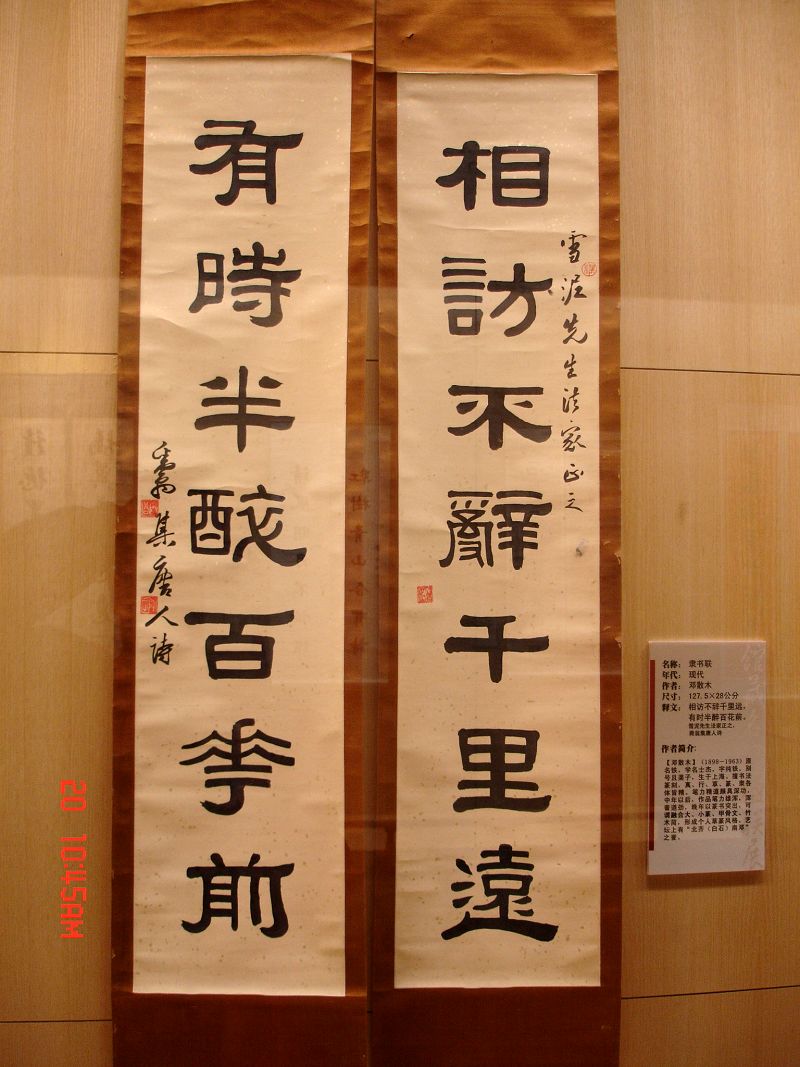 相訪不辭千里遠
雪泥先生法家正之
有時半醉百花前
糞翁集唐人詩
名称： 隶书联
年代： 现代
作者： 邓散木
尺寸： 127.5×28公分
释文： 相访不辞千里远，
有时半醉百花前。
雪泥先生法家正之，
粪翁集唐人诗
作者简介：
【邓散木】（1898—1963）原
名铁，学名士杰，字纯铁，别
号且渠子，生于上海，擅书法
篆刻，真、行、草、篆、隶各
体皆精，笔力精遒颇具深功，
中年以后，作品笔力雄浑，浑
着遒劲，晚年以篆书突出，可
谓融会大、小篆、甲骨文、竹
木简，形成个人草篆风格，艺
坛上有“北齐（白石）南邓”
之誉。
20 10:45AM